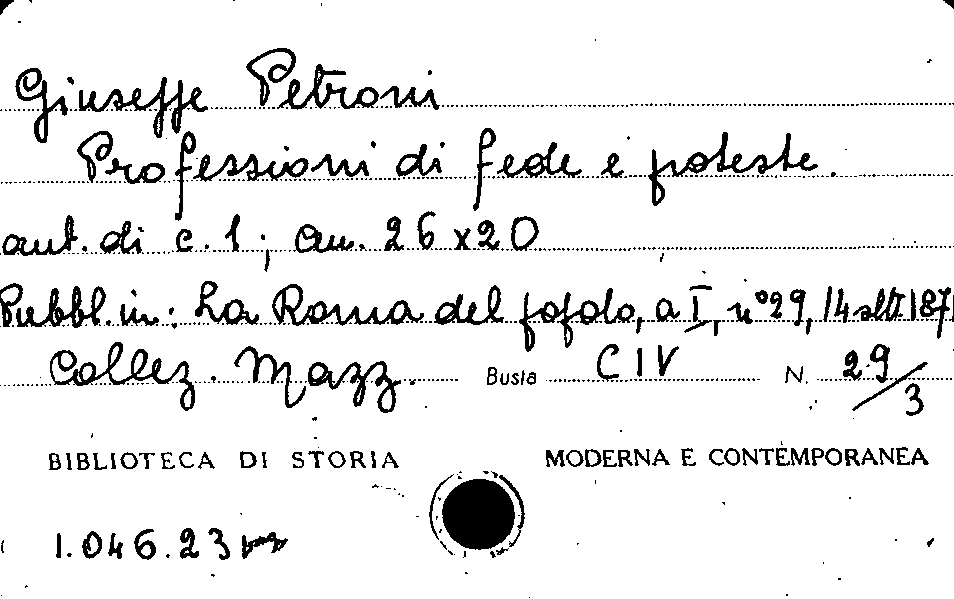 Giuseppe Petroni
Professioni di fede e proteste.
aut. di c. 1; cm. 26 x 20
Pubbl. in: La Roma del popolo, a I, n° 29, 14 sett. 1871
Collez. Mazz. Busta CIV N. 29/3
BIBLIOTECA DI STORIA MODERNA E CONTEMPORANEA
1.046.23